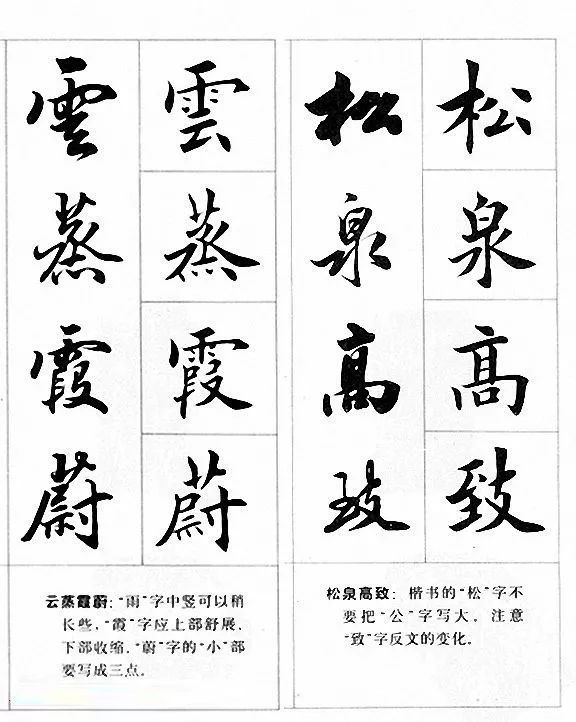 雲蒸霞蔚
雲蒸霞蔚
云蒸霞蔚:“雨”字中竖可以稍
长些,“霞”字应上部舒展,
下部收缩,“蔚”字的“小”部
要写成三点。
松泉髙致
松泉髙致
松泉高致:楷书的“松”字不
要把“公”字写大。注意
“致”字反文的变化。